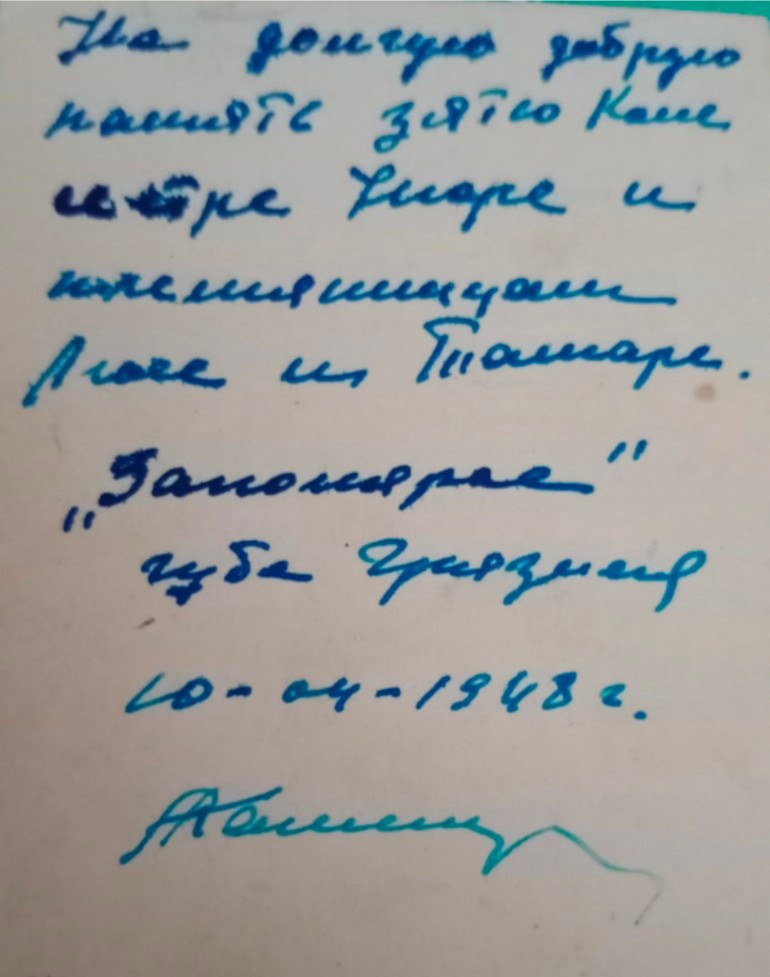 На долгую добрую
память зятю Коле
сестре Нюре и
племянницам
Люсе и Тамаре.
„Заполярье"
губа Грязная
10-04-1948 г.